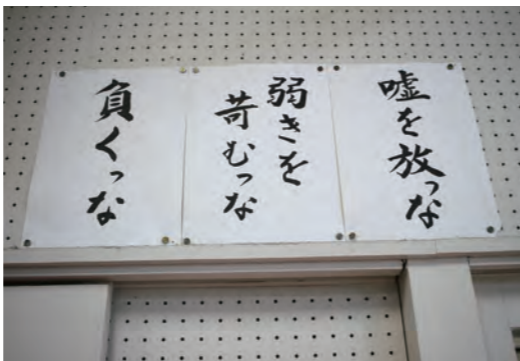 嘘を放っな
弱きを
苛むっな
負くっな